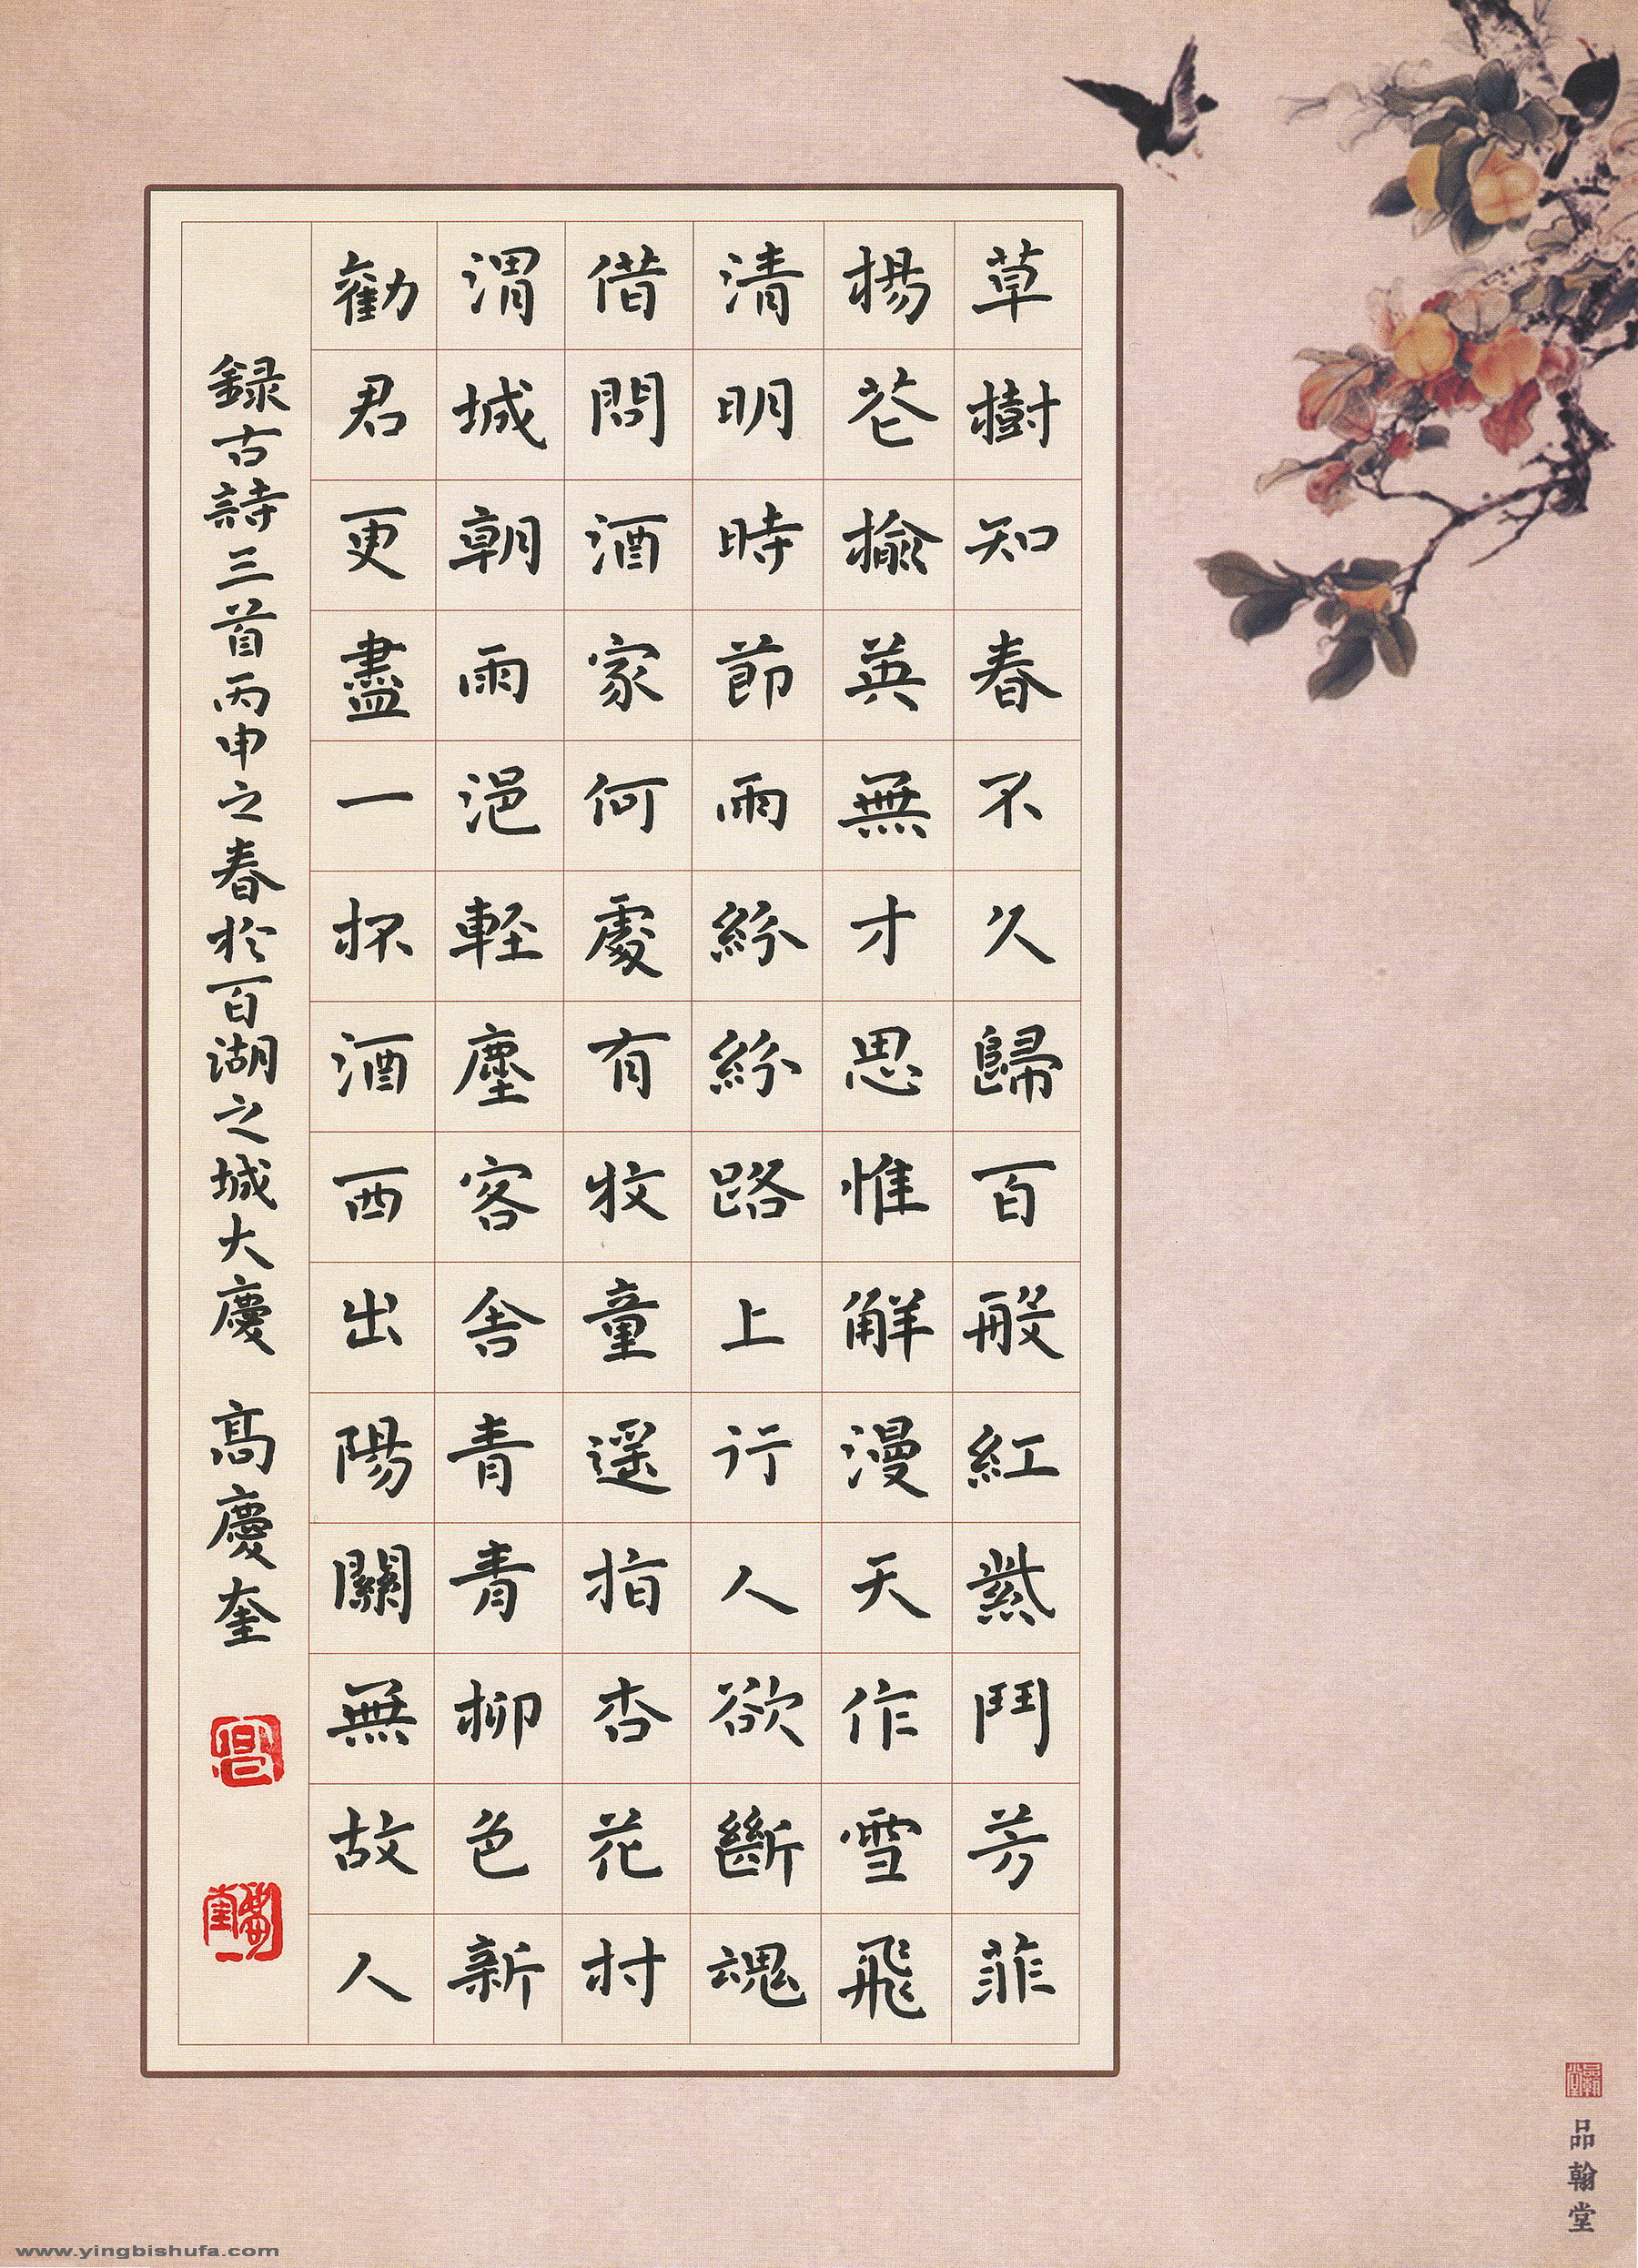 草樹知春不久歸百般紅紫鬥芳菲
楊花榆英無才思惟解漫天作雪飛
清明時節雨紛紛路上行人欲斷魂
借問酒家何處有牧童遥指杏花村
渭城朝雨浥輕塵客舍青青柳色新
勸君更盡一杯酒西出陽關無故人
録古詩三首丙申之春於百湖之城大慶 高慶奎
品翰堂
www.yingbishufa.com